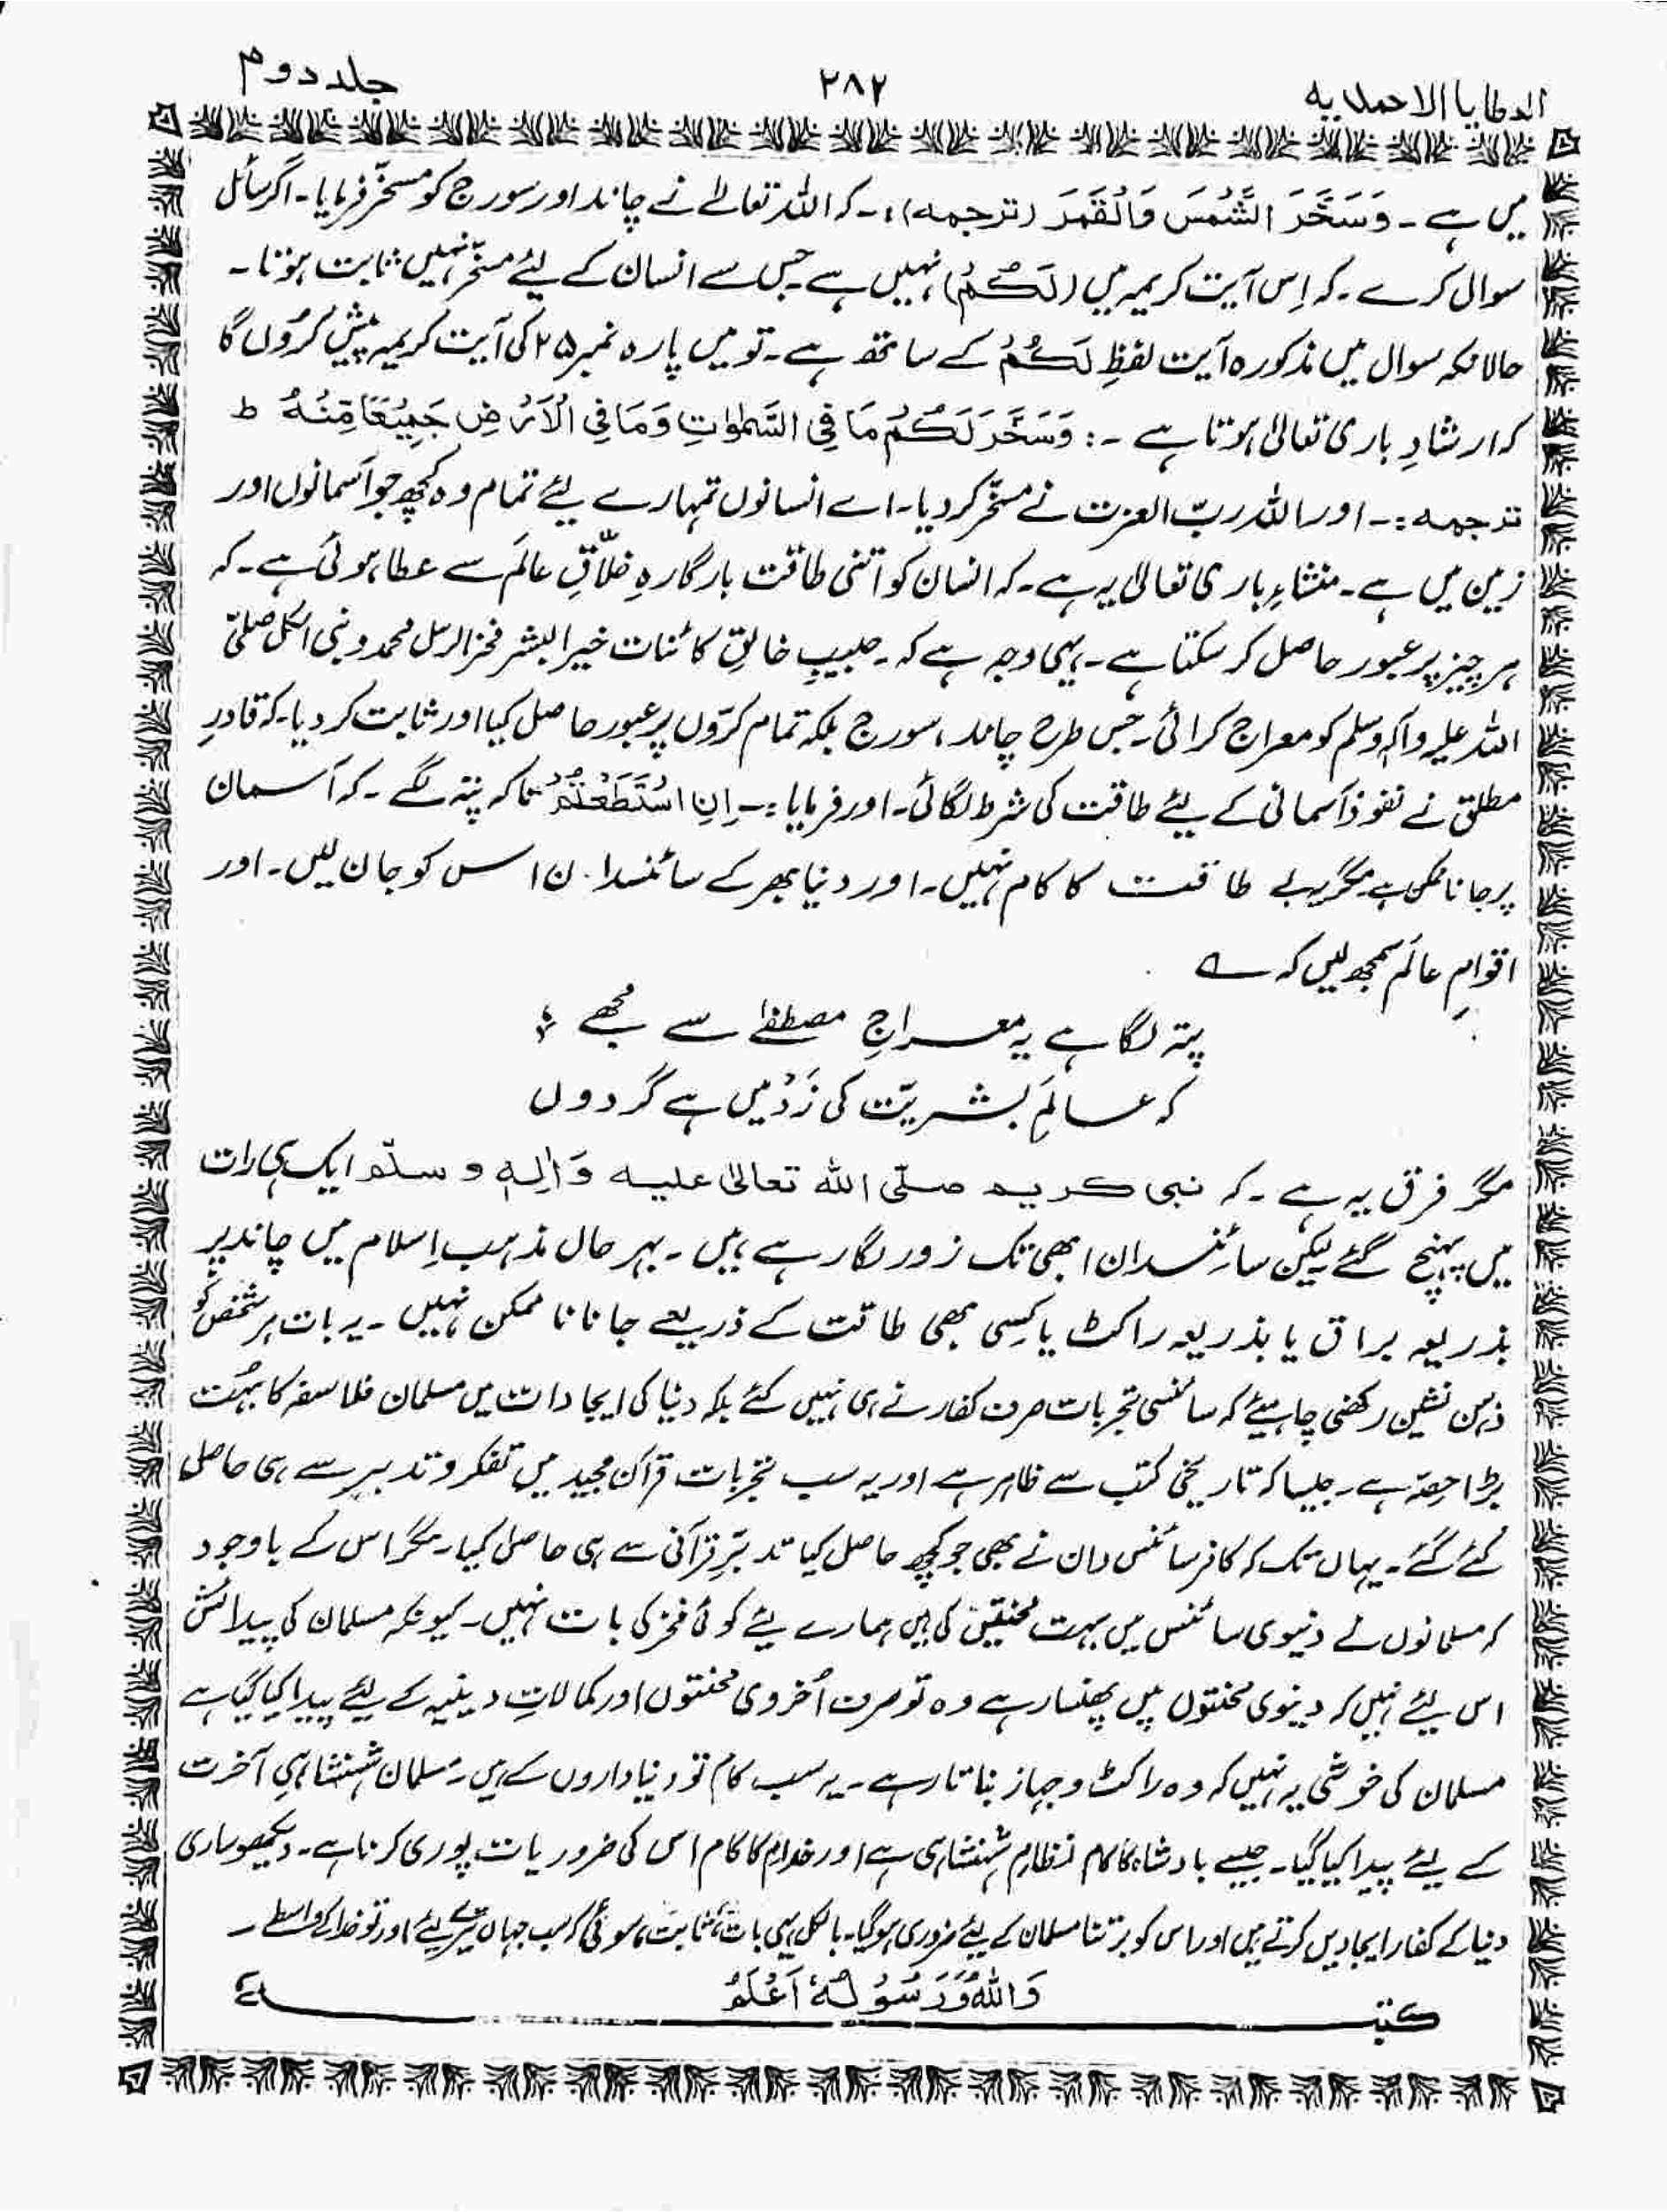 العطایا الاحمدیہ
۲۸۲
جلد دوم
میں ہے ۔ وَسَخَّرَ الشَّمْسَ وَالْقَمَرَ (ترجمہ) :۔ کہ اللہ تعالےٰ نے چاند اور سورج کو مسخّر فرمایا۔ اگر سائل
سوال کرے ۔ کہ اِس آیت کریمہ میں (لَکُمْ) نہیں ہے جس سے انسان کے لیئے مسخّر نہیں ثابت ہوتا ۔
حالانکہ سوال میں مذکورہ آیت لفظِ لَکُمْ کے ساتھ ہے ۔ تو میں پارہ نمبر ۲۵ کی آیت کریمہ پیش کرُوں گا
کہ ارشادِ باری تعالیٰ ہوتا ہے ۔: وَسَخَّرَ لَکُمْ مَا فِی السَّمٰوٰتِ وَمَا فِی الْاَرْضِ جَمِیْعًا مِّنْہُ ط
ترجمہ :۔ اور اللہ ربّ العزت نے مسخّر کر دیا۔ اے انسانوں تمہارے لیئے تمام وہ کچھ جو آسمانوں اور
زمین میں ہے ۔ منشاءِ باری تعالیٰ یہ ہے ۔ کہ انسان کو اتنی طاقت بارگارہِ خلّاقِ عالَم سے عطا ہوئی ہے ۔ کہ
ہر چیز پر عبور حاصل کر سکتا ہے ۔ یہی وجہ ہے کہ ۔ حبیبِ خالقِ کائنات خیر البشر فخر الرسل محمد و نبی الکل صلیّ
اللہ علیہ وآلہٖ وسلم کو معراج کرائی ۔ جس طرح چاند ، سورج بلکہ تمام کرّوں پر عبور حاصل کیا اور ثابت کر دیا ۔ کہ قادرِ
مطلق نے نفوذِ آسمانی کے لیئے طاقت کی شرط لگائی ۔ اور فرمایا :۔ اِنِ اسْتَطَعْتُمْ تاکہ پتہ لگے ۔ کہ آسمان
پر جانا ممکن ہے مگر یہ بے طاقت کا کام نہیں ۔ اور دنیا بھر کے سائنسدان اس کو جان لیں ۔ اور
اقوامِ عالَم سمجھ لیں کہ ؎
پتہ لگا ہے یہ معراجِ مصطفےٰ سے مجھے ؛
کہ عالمِ بشریّت کی زَدْ میں ہے گردوں
مگر فرق یہ ہے ۔ کہ نبی کریم صلّی اللہ تعالیٰ علیہ وَاٰلِہٖ و سلّم ایک ہی رات
میں پہنچ گئے لیکن سائنسدان ابھی تک زور لگا رہے ہیں ۔ بہر حال مذہب اِسلام میں چاند پر
بذریعہ براق یا بذریعہ راکٹ یا کِسی بھی طاقت کے ذریعے جانا نا ممکن نہیں ۔ یہ بات ہر شخص کو
ذہن نشین رکھنی چاہیئے کہ سائنسی تجربات صرف کفار نے ہی نہیں کئے بلکہ دنیا کی ایجادات میں مسلمان فلاسفہ کا بہُت
بڑا حِصّہ ہے ۔ جیسا کہ تاریخی کتب سے ظاہر ہے اور یہ سب تجربات قرآن مجید میں تفکر و تدبیر سے ہی حاصل
کئے گئے ۔ یہاں تک کہ کافر سائنس دان نے بھی جو کچھ حاصل کیا تدبّرِ قرآنی سے ہی حاصل کیا ۔ مگر اس کے باوجود
کہ مسلمانوں نے دنیوی سائنس میں بہت محنتیں کی ہیں ہمارے لیئے کوئی فخر کی بات نہیں ۔ کیونکہ مسلمان کی پیدائش
اس لیئے نہیں کہ دینوی محنتوں میں پھنسا رہے وہ تو صرف اُخروی محنتوں اور کمالاتِ دینیہ کے لیئے پیدا کیا گیا ہے
مسلمان کی خوشی یہ نہیں کہ وہ راکٹ و جہاز بناتا رہے ۔ یہ سب کام تو دنیا داروں کے ہیں ۔ مسلمان شہنشاہیِ آخرت
کے لیئے پیدا کیا گیا ۔ جیسے بادشاہ کا کام نظامِ شہنشاہی ہے اور خدام کا کام اس کی ضروریات پوری کرنا ہے ۔ دیکھو ساری
دنیا کے کفار ایجادیں کرتے ہیں اور اس کو برتنا مسلمان کے لیئے ضروری ہو گیا۔ بالکل یہی بات ثابت ہوئی کہ سب جہاں تیرے لیئے اور تو خدا کے واسطے ۔
وَاللّٰہُ وَرَسُوْلُہٗ اَعْلَمُ
کتبـــــہ